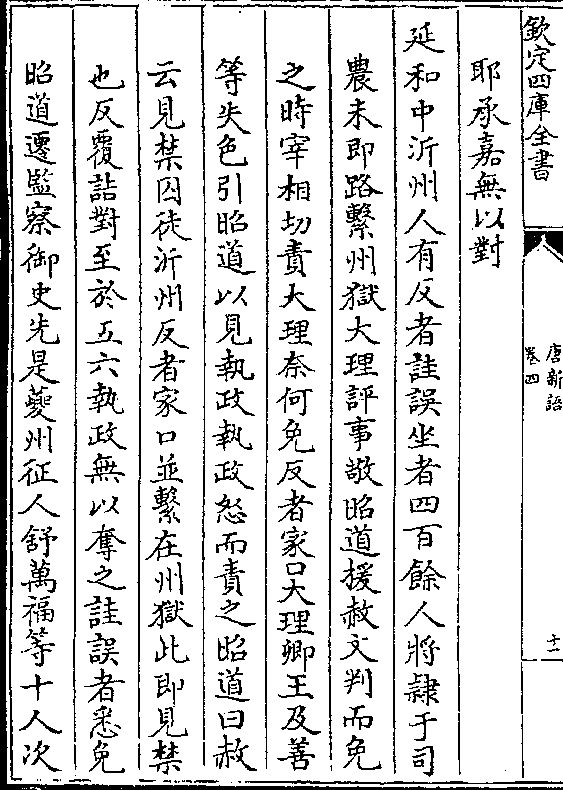 欽定四庫全書
唐新語
卷四
十二
耶承嘉無以對
延和中沂州人有反者詿誤坐者四百餘人將隸于司
農未即路繫州獄大理評事敬昭道援赦文判而免
之時宰相切責大理奈何免反者家口大理卿王及善
等失色引昭道以見執政執政怒而責之昭道曰赦
云見禁囚徒沂州反者家口並繫在州獄此即見禁
也反覆詰對至於五六執政無以奪之詿誤者悉免
昭道遷監察御史先是夔州征人舒萬福等十人次